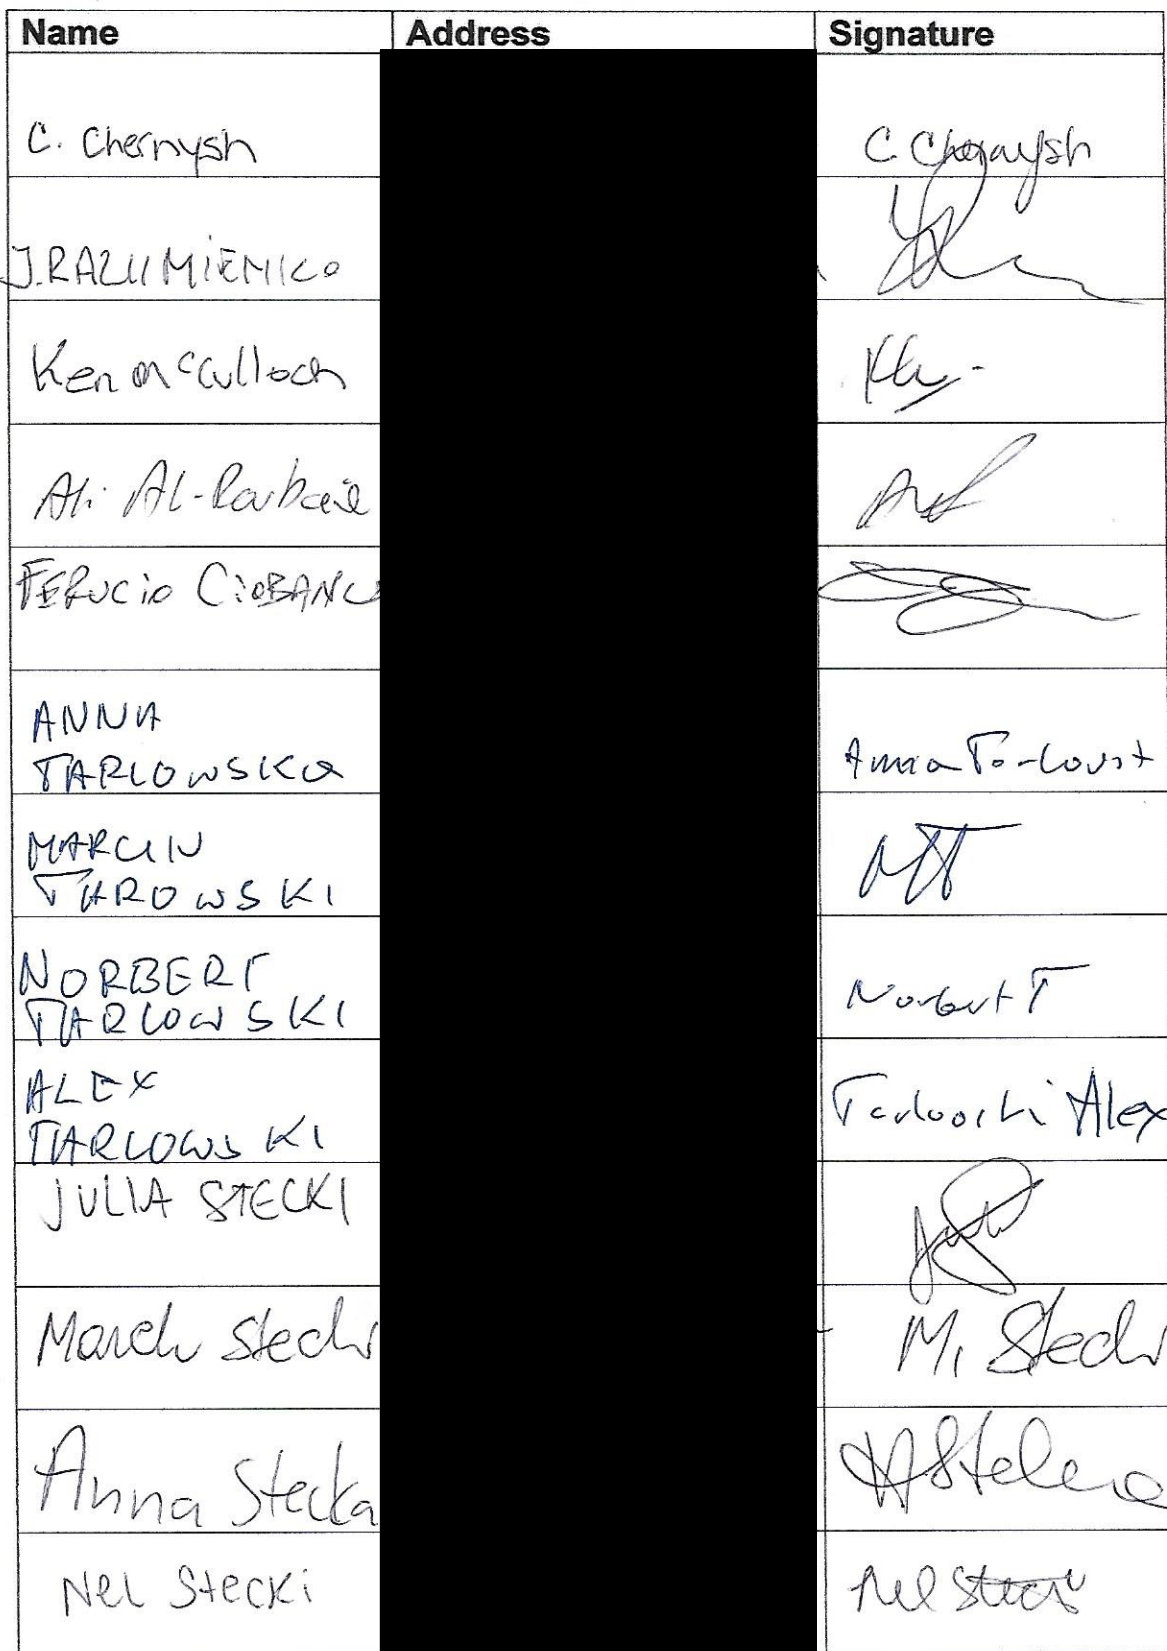 Name Address Signature
C. Chernysh C. Chernysh
J. RAZUMIENKO
Ken McCulloch
Ali Al-Rubaie
FERUCIO CIOBANU
ANNA
TARLOWSKA Anna
MARCIN
TAROWSKI MT
NORBERT
TARLOWSKI Norbert T
ALEX
TARLOWSKI Tarlowski Alex
JULIA STECKI
Stecki M. Stecki
Anna Stecka
Nel Stecki Nel Stecki